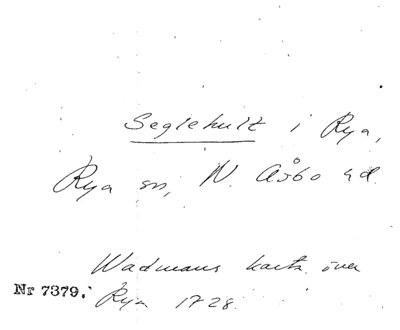 Seglehult i Rya,
Rya sn, N. Åsbo hd.
Wadmans karta över
Nr 7379. Rya 1728.